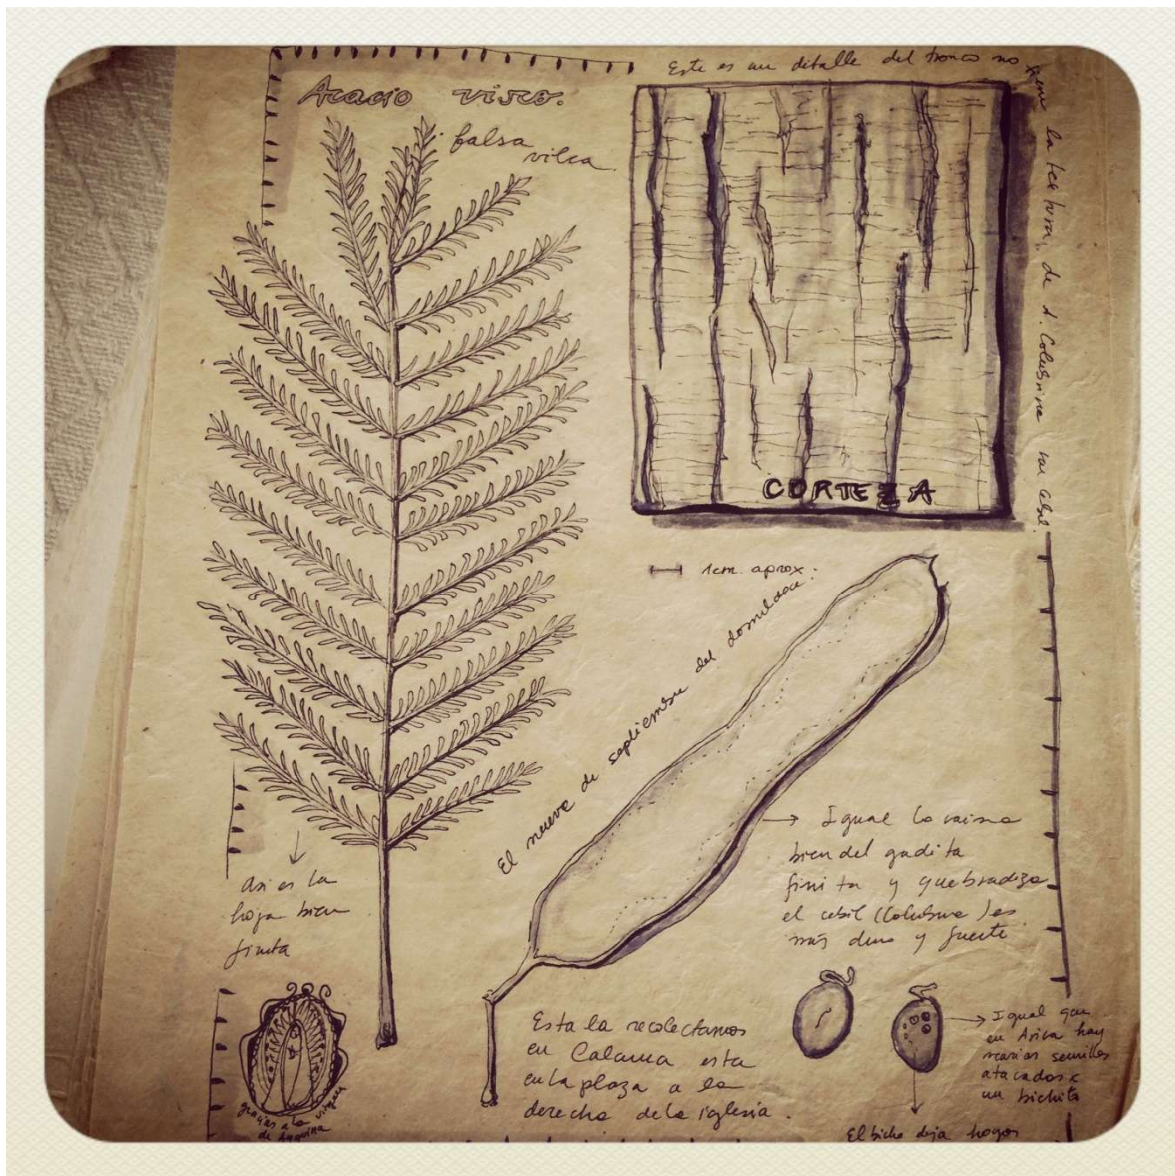 Acacio visco.
falsa
vilca
Este es un detalle del tronco no tiene la textura, de A. Colubrina var cebil.
CORTEZA
1cm. aprox.
El nueve de septiembre del domildoce
Asi es la
hoja bien
finita
Igual la vaina
bien del gadita
finita y quebradiza
el cebil (Colubrina) es
más duro y fuerte
Esta la recolectamos
en Calama esta
en la plaza a la
derecha de la iglesia.
Igual que
en Arica hay
varias semillas
atacados x
un bichito
El bicho deja hoyos
gracias a la virgencita
de Ayquina